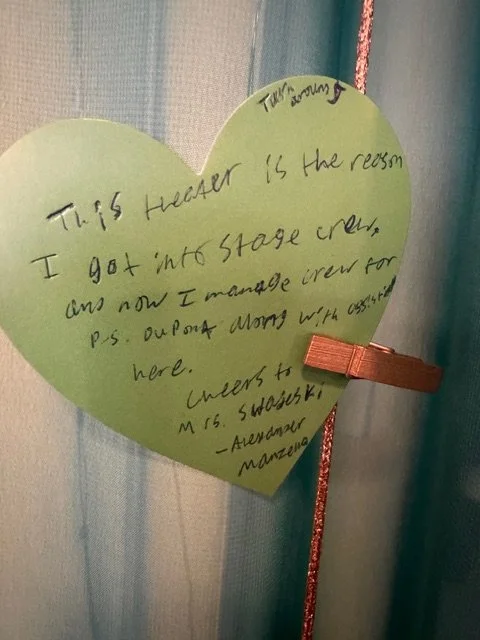 Turn
around
This theater is the reason
I got into stage crew,
and now I manage crew for
P.S. DuPont along with assisting
here.
Cheers to
Mrs.
-Alexander